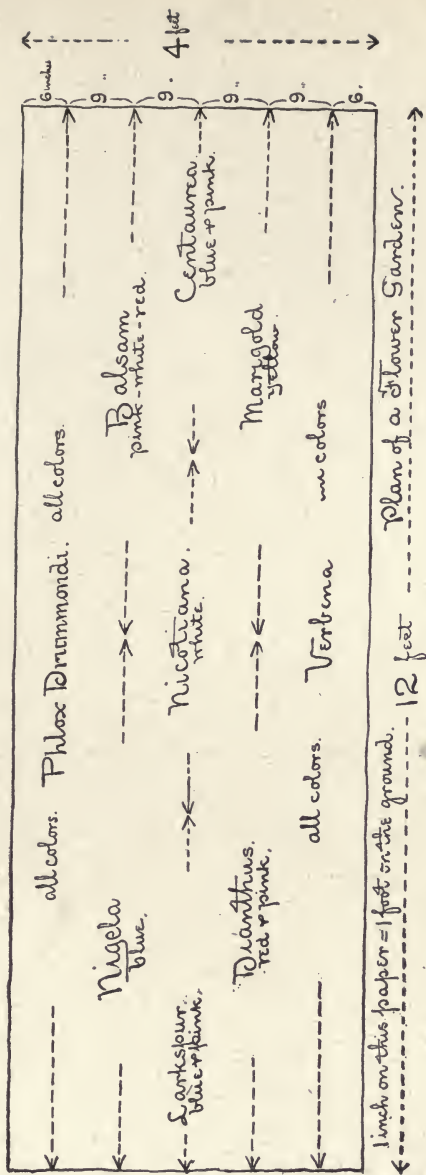 6 inches
9 "
9 .
9 "
9 "
6 .
4 feet
all colors. Phlox Drummondi. all colors.
Nigela
blue.
Balsam
pink-white-red.
Larkspur.
blue & pink.
Nicotiana.
white.
Centaurea
blue & pink.
Dianthus.
red & pink.
Marigold
yellow.
all colors. Verbena colors
1 inch on this paper = 1 foot on the ground.
12 feet
Plan of a Flower Garden.